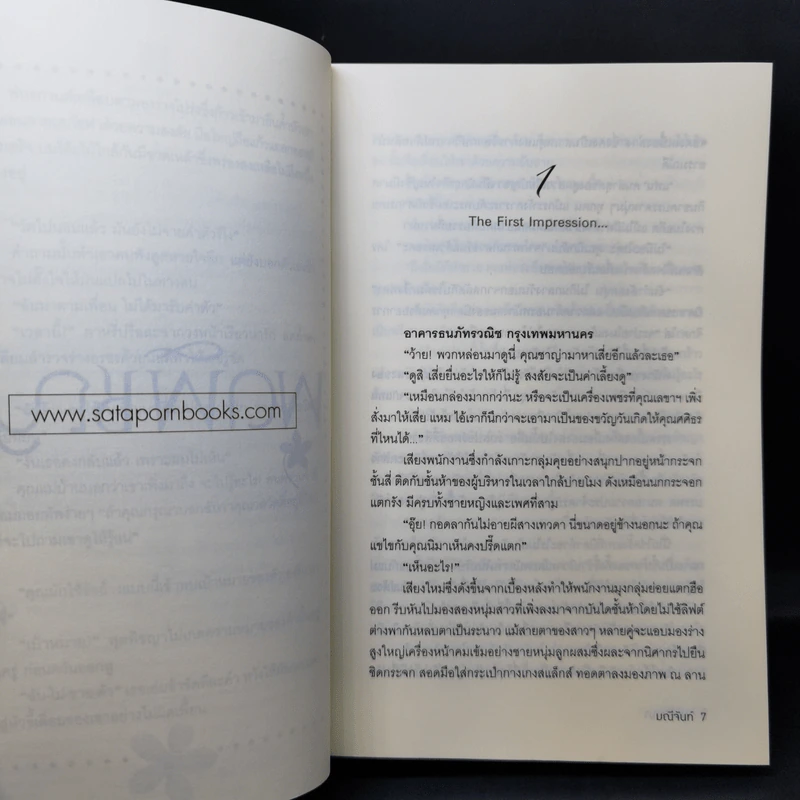 www.satapornbooks.com
1
The First Impression...
อาคารธนภัทรวณิช กรุงเทพมหานคร
“ว้าย! พวกหล่อนมาดูนี่ คุณชาญ่ามาหาเสี่ยอีกแล้วละเธอ”
“ดูสิ เสี่ยยื่นอะไรให้ก็ไม่รู้ สงสัยจะเป็นค่าเลี้ยงดู”
“เหมือนกล่องมากกว่านะ หรือจะเป็นเครื่องเพชรที่คุณเลขาฯ เพิ่ง
สั่งมาให้เสี่ย แหม ไอ้เราก็นึกว่าจะเอามาเป็นของขวัญวันเกิดให้คุณศศิธร
ที่ไหนได้...”
เสียงพนักงานซึ่งกำลังเกาะกลุ่มคุยอย่างสนุกปากอยู่หน้ากระจก
ชั้นสี่ ติดกับชั้นห้าของผู้บริหารในเวลาใกล้บ่ายโมง ดังเหมือนนกกระจอก
แตกรัง มีครบทั้งชายหญิงและเพศที่สาม
“อุ๊ย! กอดลากันไม่อายผีสางเทวดา นี่ขนาดอยู่ข้างนอกนะ ถ้าคุณ
แขไขกับคุณนิมาเห็นคงปรี๊ดแตก”
“เห็นอะไร!”
เสียงใหม่ซึ่งดังขึ้นจากเบื้องหลังทำให้พนักงานมุงกลุ่มย่อยแตกฮือ
ออก รีบหันไปมองสองหนุ่มสาวที่เพิ่งลงมาจากบันไดชั้นห้าโดยไม่ใช้ลิฟต์
ต่างพากันหลบตาเป็นระนาว แม้สายตาของสาวๆ หลายคู่จะแอบมองร่าง
สูงใหญ่เครื่องหน้าคมเข้มอย่างชายหนุ่มลูกผสมซึ่งผละจากนิศากรไปยืน
ชิดกระจก สอดมือใส่กระเป๋ากางเกงสแล็กส์ ทอดตาลงมองภาพ ณ ลาน
มณีจันท์ 7